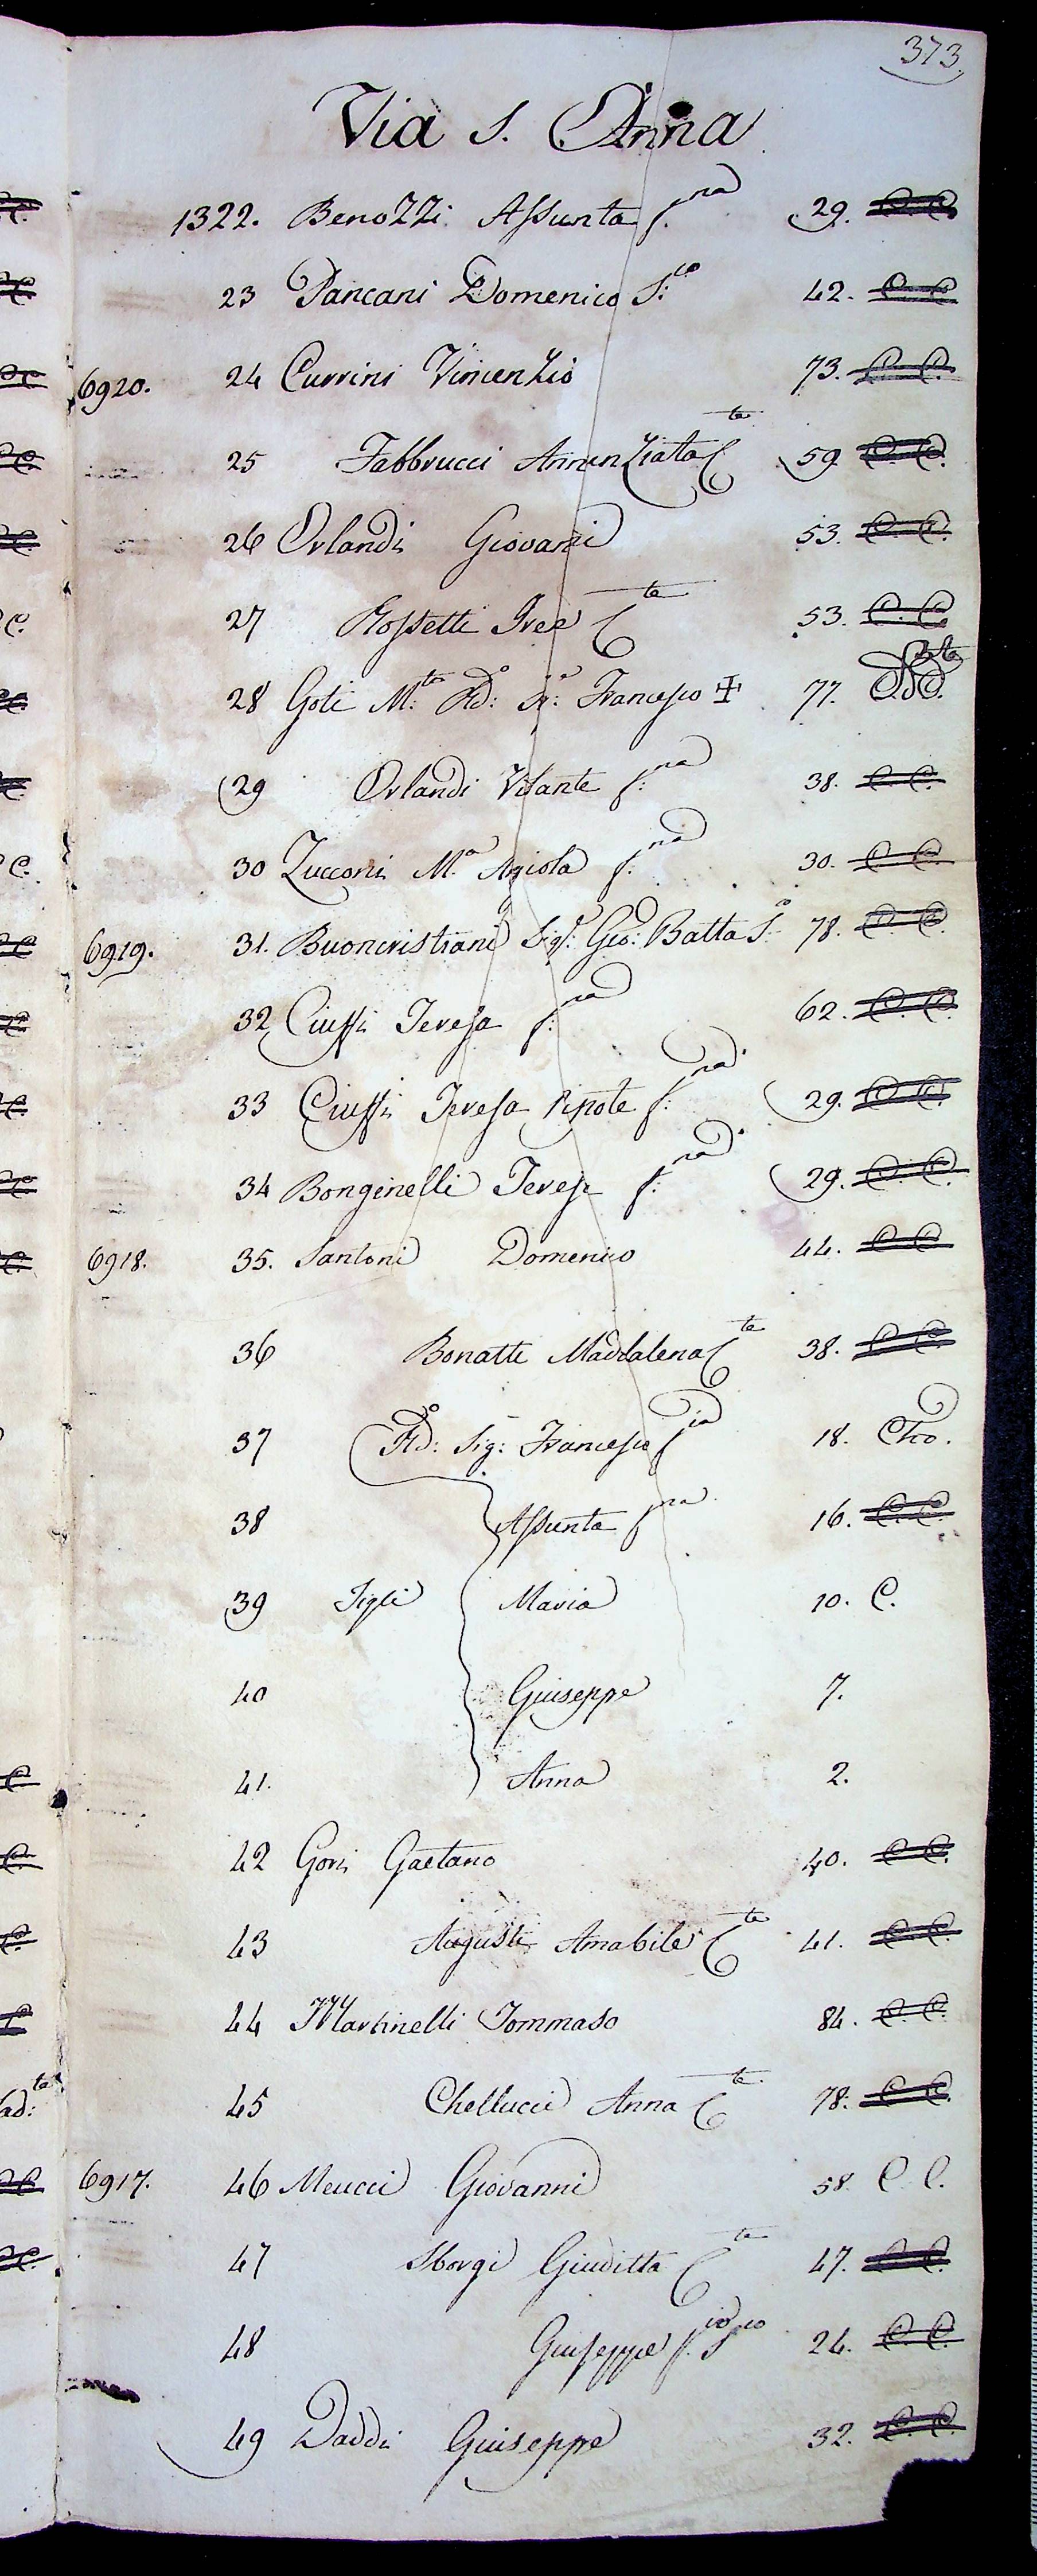 373.
Via S. Anna
1322. Benozzi Assunta f.na 29. C. C.
23 Pancani Domenico S:co 42. C. C.
6920. 24 Currini Vincenzio 73. C. C.
25 Fabbrucci Annunziata C.te 59 C. C.
26 Orlandi Giovani 53. C. C.
27 Rossetti C.te 53. C. C.
28 Goti M:to Rd:o Sr: Francesco ✠ 77. C. C.
29 Orlandi Vitante f:na 38. C. C.
30 Zucconi M.a Agiola f:na 30. C. C.
6919. 31. Buoncristiani Sig:r Gio: Batta S:o 78. C. C.
32 Ciuffi Teresa f:na 62. C. C.
33 Ciuffi Teresa Nipote f:na 29. C. C.
34 Bonginelli Teresa f:na 29. C. C.
6918. 35. Santoni Domenico 44. C. C.
36 Bonatti Maddalena C.te 38. C. C.
37 Rd:o Sig: Francesco f.io 18. Cho.
38 Assunta f.na 16. C. C.
39 Figli Maria 10. C.
40 Giuseppe 7.
41. Anna 2.
42 Gori Gaetano 40. C. C.
43 Augusti Amabile C.te 41. C. C.
44 Martinelli Tommaso 84. C. C.
45 Chellucci Anna C.te 78: C. C.
6917. 46 Meucci Giovanni 58. C. C.
47 Sborgi Giuditta C.te 47. C. C.
48 Giuseppe f.io S.co 24. C. C.
49 Daddi Giuseppe 32. C. C.